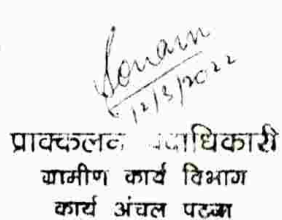 Sonam
12/3/2022
प्राक्कलन पदाधिकारी
ग्रामीण कार्य विभाग
कार्य अंचल पटना